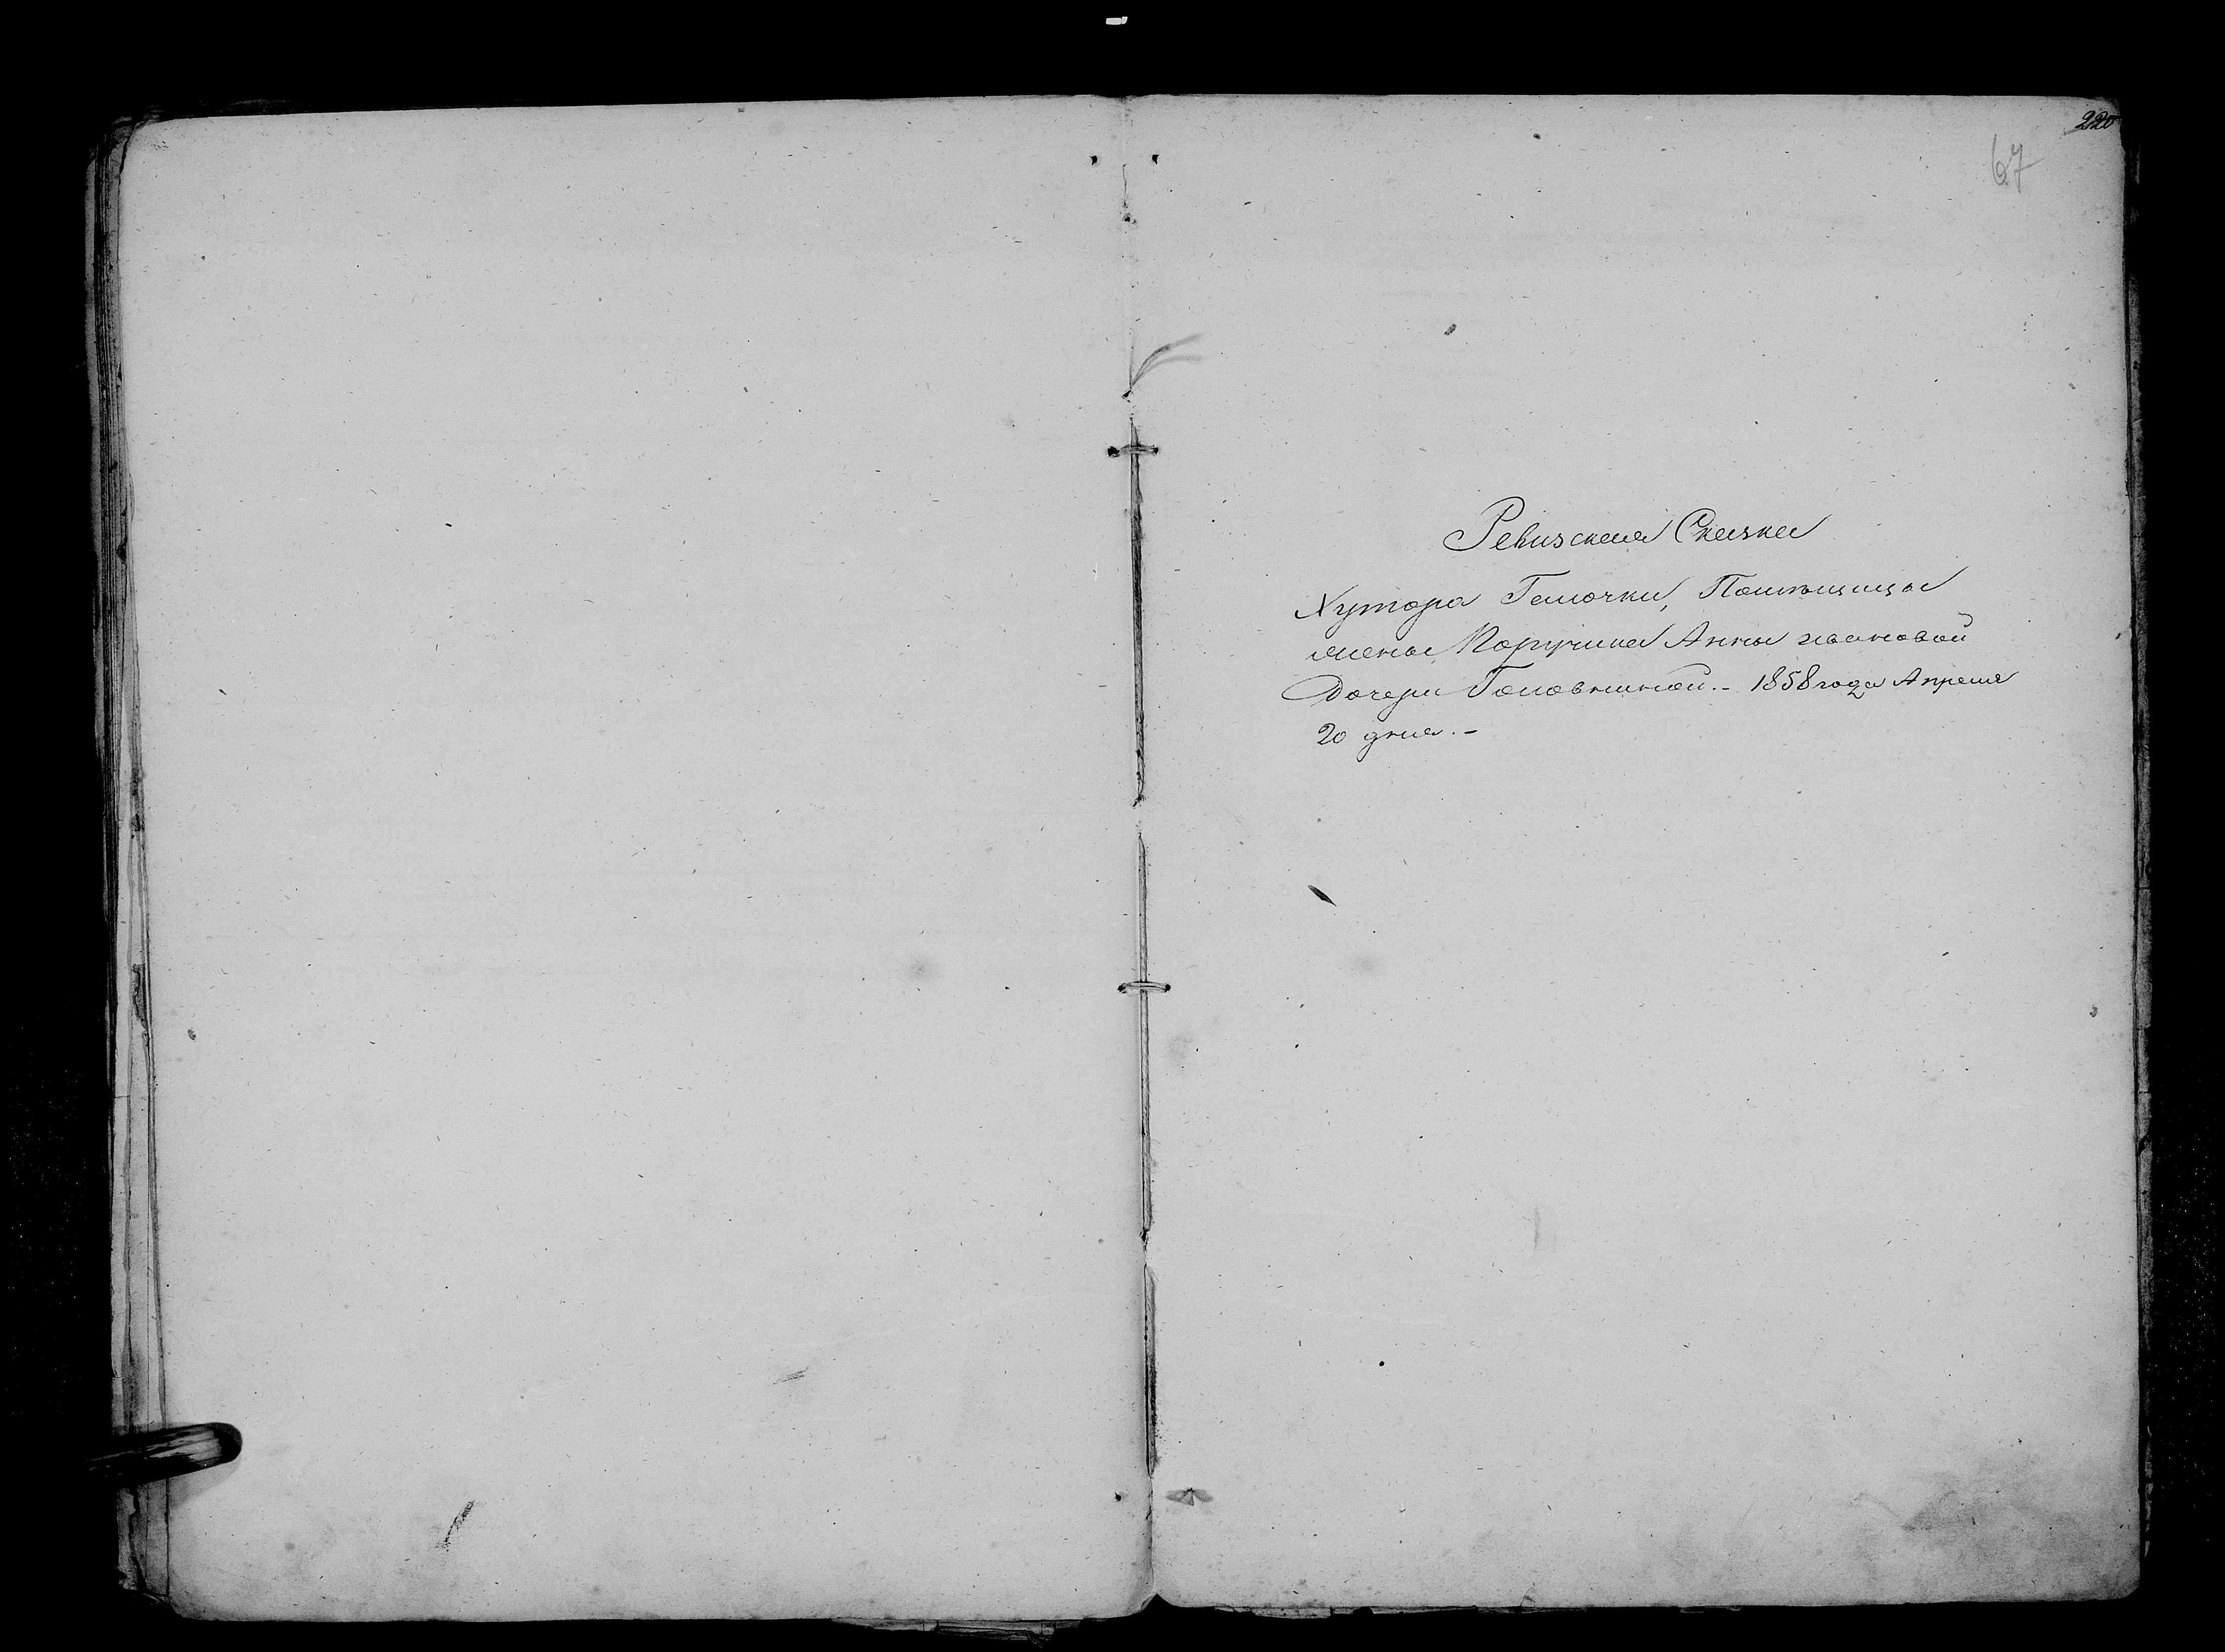 220
67
Ревизская Сказка
Хутора Галочки, Помѣщицы
жены Поручика Анны Ивановой
Дочери Головниной.- 1858 года Апреля
20 дня.-